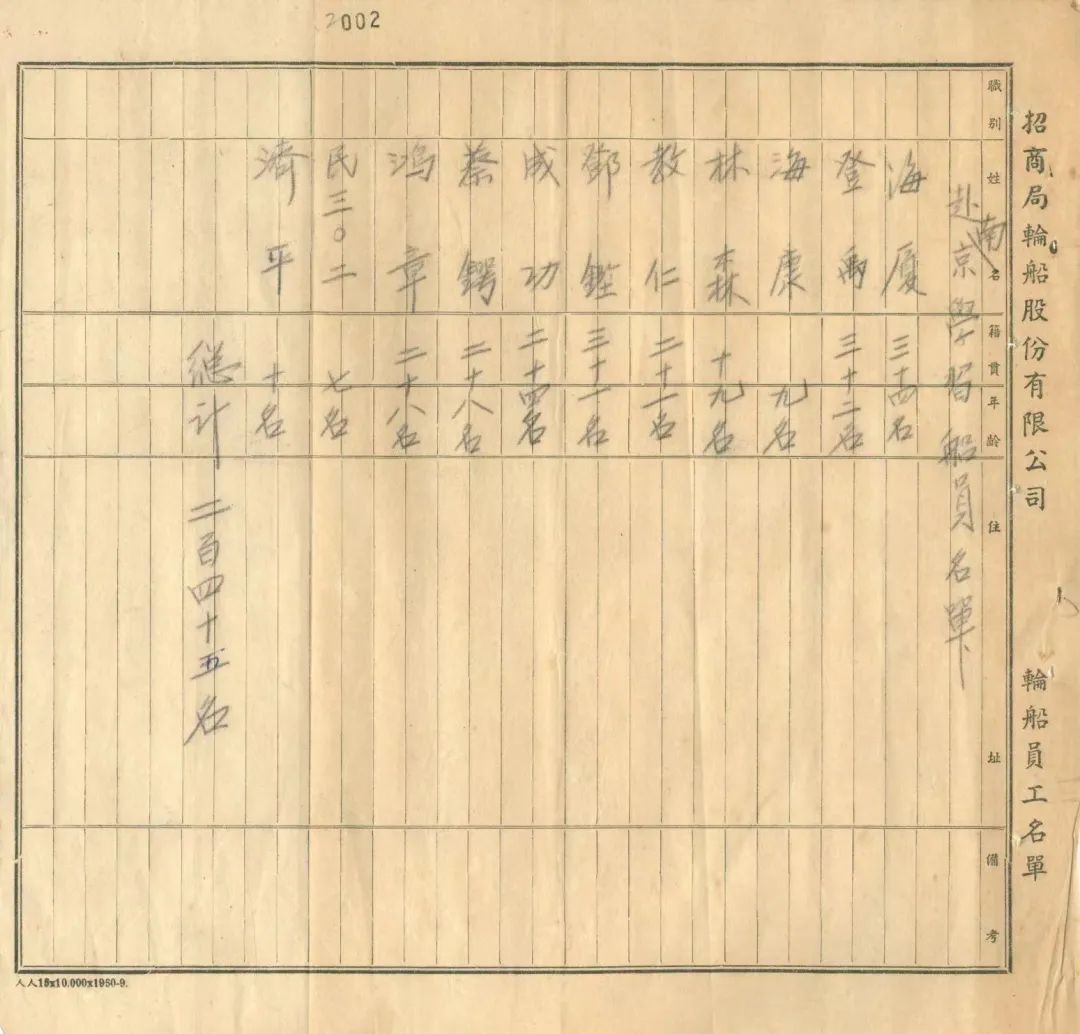 2002
招商局輪船股份有限公司 輪船員工名單
職別 姓名 籍貫 年齡 住址 備考
赴南京學習船員名單
海廈 三十四名
登禹 三十二名
海康 九名
林森 十九名
教仁 二十一名
鄧鏗 三十一名
成功 二十四名
蔡鍔 二十八名
鴻章 二十八名
民三〇二 七名
濟平 十名
總计 二百四十五名
人人15x10.000x1950-9.